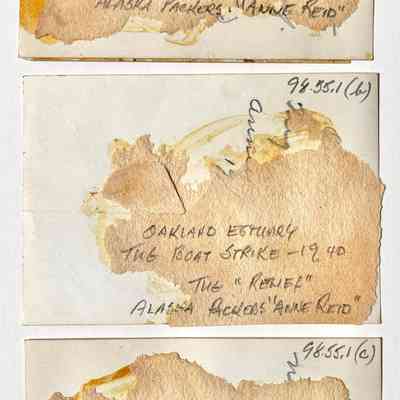 ALASKA PACKERS "ANNE REID"
98.55.1(b)
OAKLAND ESTUARY
THE BOAT STRIKE - 1940
THE "RELIEF"
ALASKA PACKERS "ANNE REID"
98.55.1(c)